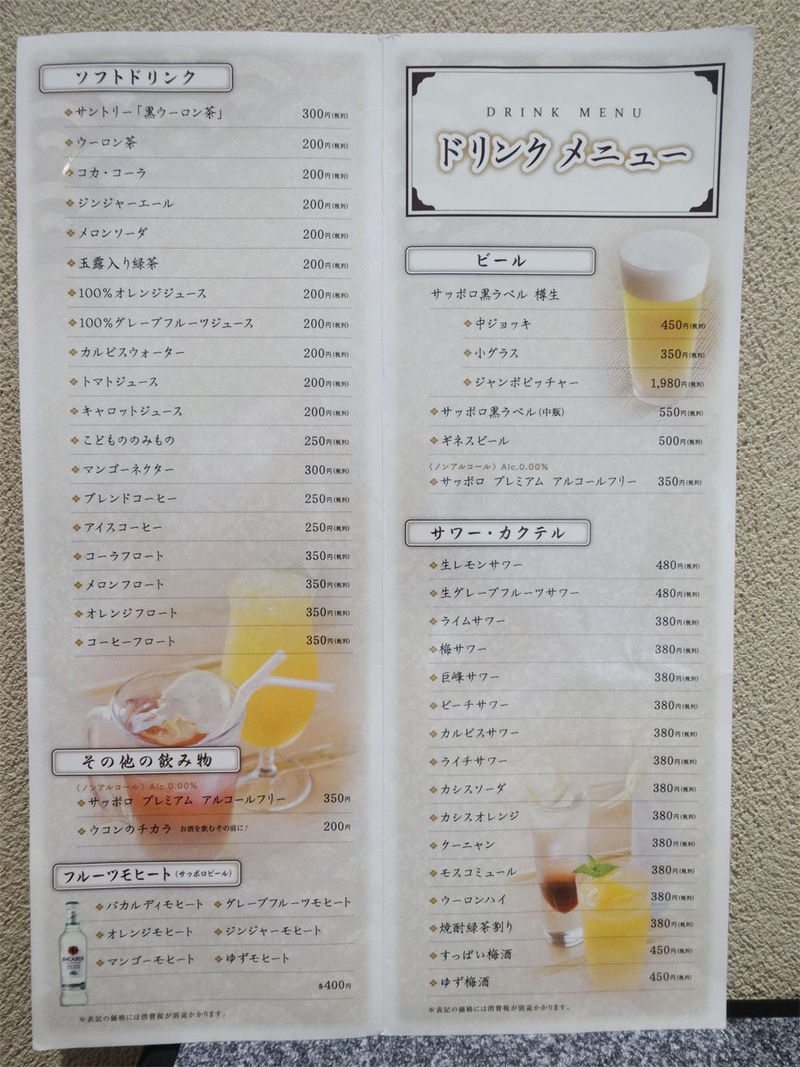 ソフトドリンク
サントリー「黒ウーロン茶」 300円(税別)
ウーロン茶 200円(税別)
コカ・コーラ 200円(税別)
ジンジャーエール 200円(税別)
メロンソーダ 200円(税別)
玉露入り緑茶 200円(税別)
100%オレンジジュース 200円(税別)
100%グレープフルーツジュース 200円(税別)
カルピスウォーター 200円(税別)
トマトジュース 200円(税別)
キャロットジュース 200円(税別)
こどもののみもの 250円(税別)
マンゴーネクター 300円(税別)
ブレンドコーヒー 250円(税別)
アイスコーヒー 250円(税別)
コーラフロート 350円(税別)
メロンフロート 350円(税別)
オレンジフロート 350円(税別)
コーヒーフロート 350円(税別)
その他の飲み物
〈ノンアルコール〉Alc.0.00%
サッポロ プレミアム アルコールフリー 350円
ウコンのチカラ お酒を飲むその前に! 200円
フルーツモヒート(サッポロビール)
バカルディモヒート グレープフルーツモヒート
オレンジモヒート ジンジャーモヒート
マンゴーモヒート ゆずモヒート
各400円
BACARDI
※表記の価格には消費税が別途かかります。
DRINK MENU
ドリンク メニュー
ビール
サッポロ黒ラベル 樽生
中ジョッキ 450円(税別)
小グラス 350円(税別)
ジャンボピッチャー 1,980円(税別)
サッポロ黒ラベル(中瓶) 550円(税別)
ギネスビール 500円(税別)
〈ノンアルコール〉Alc.0.00%
サッポロ プレミアム アルコールフリー 350円(税別)
サワー・カクテル
生レモンサワー 480円(税別)
生グレープフルーツサワー 480円(税別)
ライムサワー 380円(税別)
梅サワー 380円(税別)
巨峰サワー 380円(税別)
ピーチサワー 380円(税別)
カルピスサワー 380円(税別)
ライチサワー 380円(税別)
カシスソーダ 380円(税別)
カシスオレンジ 380円(税別)
クーニャン 380円(税別)
モスコミュール 380円(税別)
ウーロンハイ 380円(税別)
焼酎緑茶割り 380円(税別)
すっぱい梅酒 450円(税別)
ゆず梅酒 450円(税別)
※表記の価格には消費税が別途かかります。